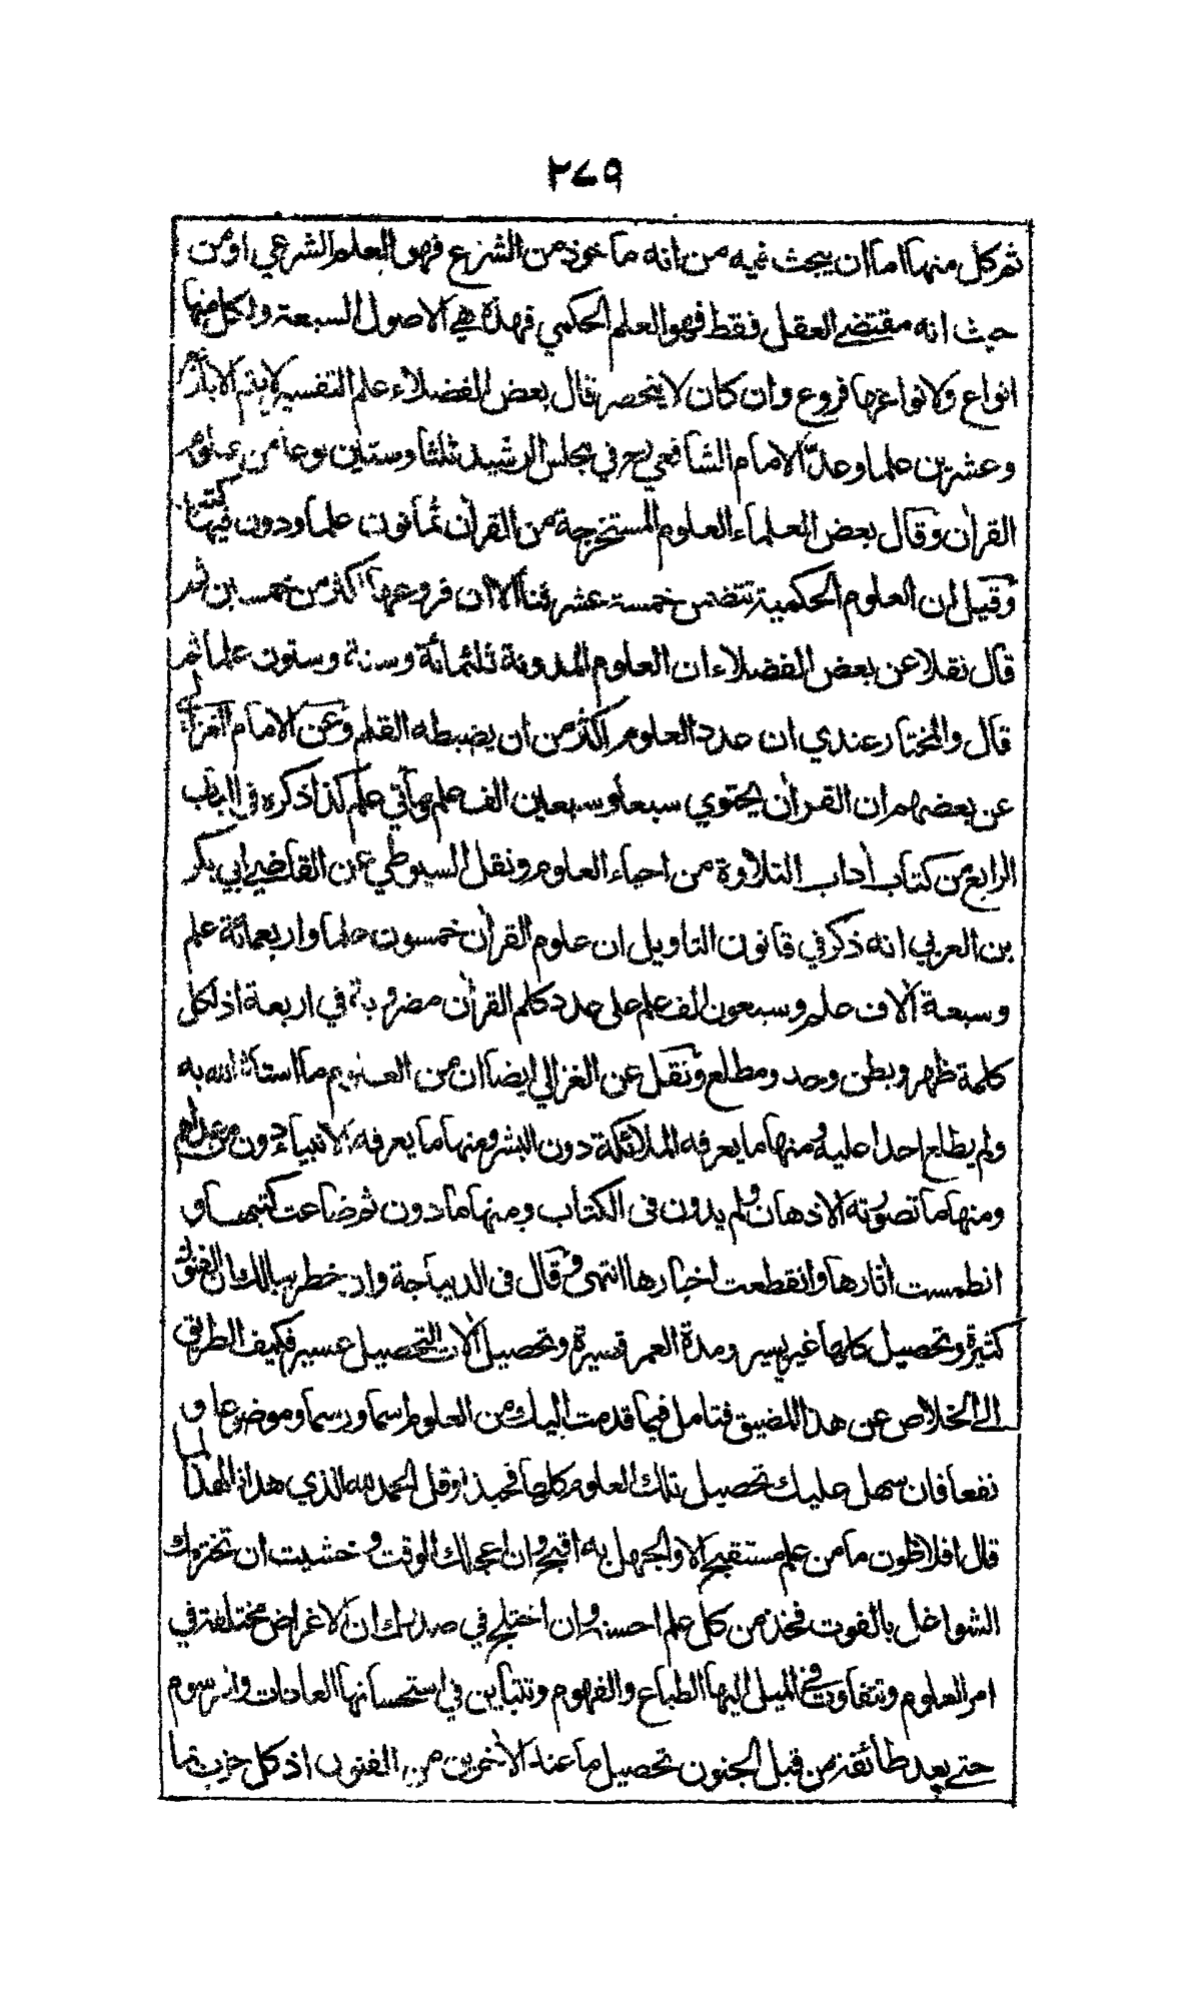 ٢٧٩
ثم كل منها اما ان يبحث فيه من انه ماخوذ من الشرع فهو العلم الشرعي او من
حيث انه مقتضى العقل فقط فهو العلم الحكمي فهذه هي الاصول السبعة ولكل منها
انواع ولانواعها فروع وان كان لا ينحصر قال بعض الفضلاء علم التفسير لا يتم الا
وعشرين علما وعد الامام الشافعي رح في مجلس الرشيد ثلثا وستين نوعا من علوم
القران وقال بعض العلماء العلوم المستخرجة من القران ثمانون علما ودون فيها كتب
وقيل ان العلوم الحكمية تتضمن خمسة عشر فنا الا ان فروعها اكثر من خمسين ثم
قال نقلا عن بعض الفضلاء ان العلوم المدونة ثلثمائة وستة وستون علما ثم
قال والمختار عندي ان عدد العلوم اكثر من ان يضبطه القلم وعن الامام الغزالي
عن بعضهم ان القران يحتوي سبعا وسبعين الف علم ومأتي علم كذا ذكره في الباب
الرابع من كتاب اداب التلاوة من احياء العلوم ونقل السيوطي عن القاضي ابي بكر
بن العربي انه ذكر في قانون التاويل ان علوم القران خمسون علما واربعمائة علم
وسبعة الاف علم وسبعون الف علم على عدد كلم القران مضروبة في اربعة اذ لكل
كلمة ظهر وبطن وحد ومطلع ونقل عن الغزالي ايضا ان من العلوم ما استاثر الله به
ولم يطلع احدا عليه ومنها ما يعرفه الملائكة دون البشر ومنها ما يعرفه الانبياء دون من عداهم
ومنها ما تصورته الاذهان ولم يدون في الكتاب ومنها ما دون ثم ضاعت كتبها و
انطمست اثارها وانقطعت اخبارها انتهى وقال في الديباجة وان خطر ببالك ان الفنون
كثيرة وتحصيل كلها غير يسير ومدة العمر قصيرة وتحصيل الات التحصيل عسير فكيف الطريق
الى الخلاص عن هذا المضيق فتامل فيما قدمت اليك من العلوم اسما ورسما وموضوعا و
نفعا فان سهل عليك تحصيل تلك العلوم كلها فحبذا وقل الحمد لله الذي هدانا لهذا
قال افلاطون ما من علم مستقبح الا والجهل به اقبح وان اعجلك الوقت وخشيت ان تخترمك
الشواغل بالفوت فخذ من كل علم احسنه وان اختلج في صدرك ان الاغراض مختلفة في
امر العلوم وتتفاوت في الميل اليها الطباع والفهوم وتتباين في استحسانها العادات والرسوم
حتى يعد طائفة من قبل الجنون تحصيل ما عند الاخرين من الفنون اذ كل حزب بما